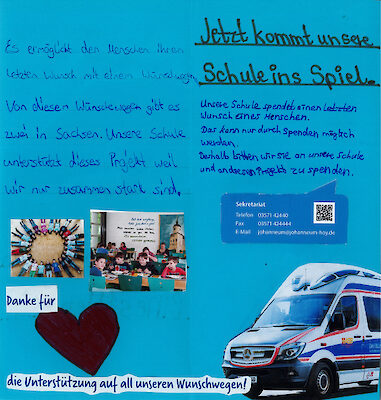 Es ermöglicht den Menschen Ihren
Letzten Wunsch mit einem Wünschewagen.
Von diesem Wünschewagen gibt es
zwei in Sachsen. Unsere Schule
unterstützt dieses Projekt weil
wir nur zusammen stark sind.
Danke für
die Unterstützung auf all unseren Wunschwegen!
Jetzt kommt unsere
Schule ins Spiel.
Unsere Schule spendet einen Letzten
Wunsch eines Menschen.
Das kann nur durch Spenden möglich
werden.
Deshalb bitten wir sie an unsere Schule
und an dieses Projekt zu spenden.
Sekretariat
Telefon 03571 42440
Fax 03571 424444
E-Mail johanneum@johanneum-hoy.de